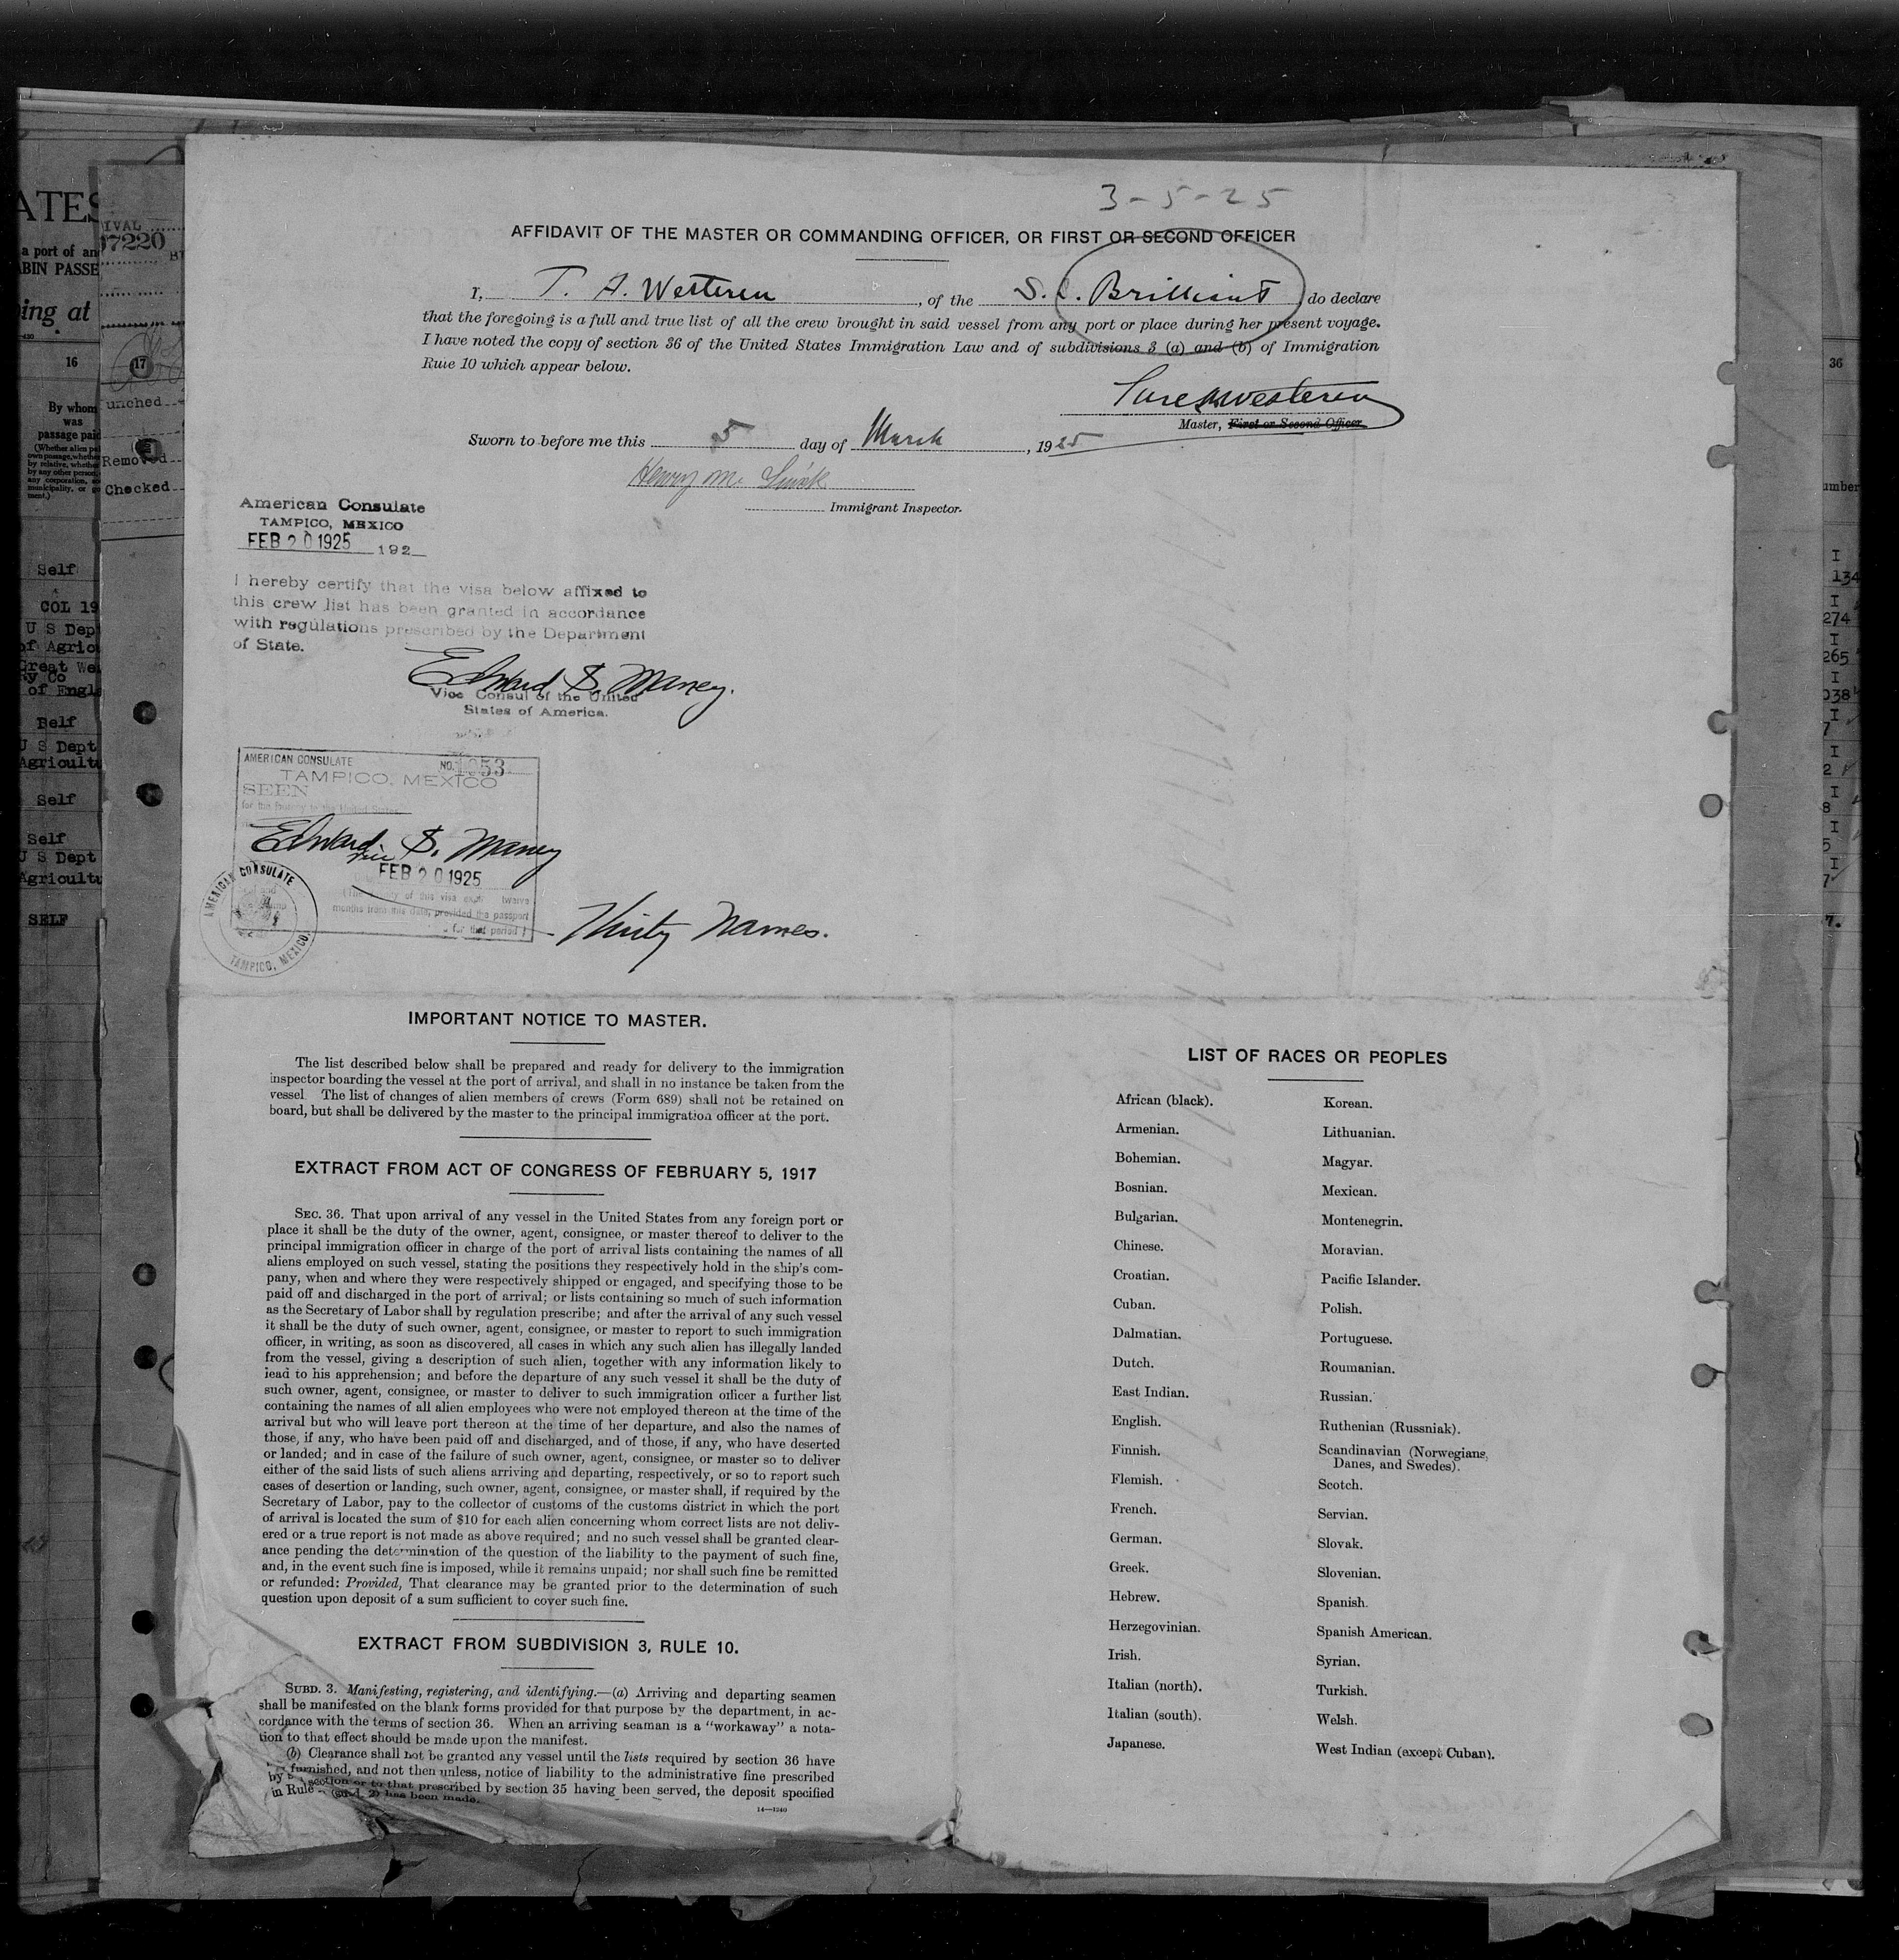 3-5-25
AFFIDAVIT OF THE MASTER OR COMMANDING OFFICER, OR FIRST OR SECOND OFFICER
I, T. A. Westeren, of the S.S. Brilliant do declare
that the foregoing is a full and true list of all the crew brought in said vessel from any port or place during her present voyage.
I have noted the copy of section 36 of the United States Immigration Law and of subdivisions 3 (a) and (b) of Immigration
Rule 10 which appear below.
Westeren
Master, First or Second Officer.
Sworn to before me this 5 day of March, 1925
Henry M.
Immigrant Inspector.
American Consulate
TAMPICO, MEXICO
FEB 20 1925 192
I hereby certify that the visa below affixed to
this crew list has been granted in accordance
with regulations prescribed by the Department
of State.
Edward S. Maney.
Vice Consul of the United
States of America.
AMERICAN CONSULATE NO. 1053
TAMPICO, MEXICO
SEEN
for the Journey to the United States
Edward S. Maney
Vice
FEB 20 1925
of this visa twelve
months from this date, provided the passport
for that period)
AMERICAN CONSULATE
TAMPICO, MEXICO.
Thirty Names.
IMPORTANT NOTICE TO MASTER.
The list described below shall be prepared and ready for delivery to the immigration
inspector boarding the vessel at the port of arrival, and shall in no instance be taken from the
vessel The list of changes of alien members of crews (Form 689) shall not be retained on
board, but shall be delivered by the master to the principal immigration officer at the port.
EXTRACT FROM ACT OF CONGRESS OF FEBRUARY 5, 1917
SEC. 36. That upon arrival of any vessel in the United States from any foreign port or
place it shall be the duty of the owner, agent, consignee, or master thereof to deliver to the
principal immigration officer in charge of the port of arrival lists containing the names of all
aliens employed on such vessel, stating the positions they respectively hold in the ship's com-
pany, when and where they were respectively shipped or engaged, and specifying those to be
paid off and discharged in the port of arrival; or lists containing so much of such information
as the Secretary of Labor shall by regulation prescribe; and after the arrival of any such vessel
it shall be the duty of such owner, agent, consignee, or master to report to such immigration
officer, in writing, as soon as discovered, all cases in which any such alien has illegally landed
from the vessel, giving a description of such alien, together with any information likely to
lead to his apprehension; and before the departure of any such vessel it shall be the duty of
such owner, agent, consignee, or master to deliver to such immigration officer a further list
containing the names of all alien employees who were not employed thereon at the time of the
arrival but who will leave port thereon at the time of her departure, and also the names of
those, if any, who have been paid off and discharged, and of those, if any, who have deserted
or landed; and in case of the failure of such owner, agent, consignee, or master so to deliver
either of the said lists of such aliens arriving and departing, respectively, or so to report such
cases of desertion or landing, such owner, agent, consignee, or master shall, if required by the
Secretary of Labor, pay to the collector of customs of the customs district in which the port
of arrival is located the sum of $10 for each alien concerning whom correct lists are not deliv-
ered or a true report is not made as above required; and no such vessel shall be granted clear-
ance pending the determination of the question of the liability to the payment of such fine,
and, in the event such fine is imposed, while it remains unpaid; nor shall such fine be remitted
or refunded: Provided, That clearance may be granted prior to the determination of such
question upon deposit of a sum sufficient to cover such fine.
EXTRACT FROM SUBDIVISION 3, RULE 10.
SUBD. 3. Manifesting, registering, and identifying.—(a) Arriving and departing seamen
shall be manifested on the blank forms provided for that purpose by the department, in ac-
cordance with the terms of section 36. When an arriving seaman is a "workaway" a nota-
tion to that effect should be made upon the manifest.
(b) Clearance shall not be granted any vessel until the lists required by section 36 have
furnished, and not then unless, notice of liability to the administrative fine prescribed
by section or to that prescribed by section 35 having been served, the deposit specified
in Rule (subd. 2) has been made.
14—1240
LIST OF RACES OR PEOPLES
African (black).
Armenian.
Bohemian.
Bosnian.
Bulgarian.
Chinese.
Croatian.
Cuban.
Dalmatian.
Dutch.
East Indian.
English.
Finnish.
Flemish.
French.
German.
Greek.
Hebrew.
Herzegovinian.
Irish.
Italian (north).
Italian (south).
Japanese.
Korean.
Lithuanian.
Magyar.
Mexican.
Montenegrin.
Moravian.
Pacific Islander.
Polish.
Portuguese.
Roumanian.
Russian.
Ruthenian (Russniak).
Scandinavian (Norwegians,
Danes, and Swedes).
Scotch.
Servian.
Slovak.
Slovenian.
Spanish.
Spanish American.
Syrian.
Turkish.
Welsh.
West Indian (except Cuban).
ATES
a port of
CABIN PASSE
ing at
16
By whom
was
passage paid
Self
COL 19
U S Dept
of Agric
Great We
Ry Co
of Engl
Self
U S Dept
Agricultu
Self
Self
U S Dept
Agricultu
SELF
IVAL
97220
17
unched
Removed
Checked
36
umber
I
134
I
274
I
265
I
038
I
7
I
2
I
8
I
5
I
7
7.